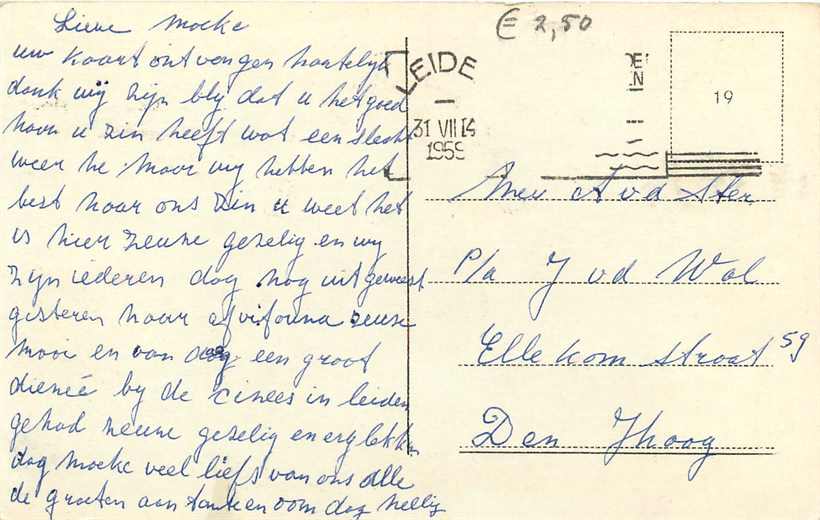 Lieve Moeke
uw kaart ontvangen hartelijk
dank wij zijn bly dat u het goed
naar u zin heeft wat een slecht
weer he maar wy hebben het
best naar ons zin u weet het
is hier reuze gezelig en wy
zijn iederen dag nog uit geweest
gisteren naar afvifauna reuze
mooi en van dag een groot
dieneé by de cinees in leiden
gehad reuze gezelig en erg lekker
dag moeke veel liefs van ons alle
de groeten aan tante en oom dag nellij
€ 2,50
LEIDE
31 VII 14
1959
DE
EN
19
Mev A v d Ster
P/a J v d Wal
Ellekom straat 59
Den Hhaag